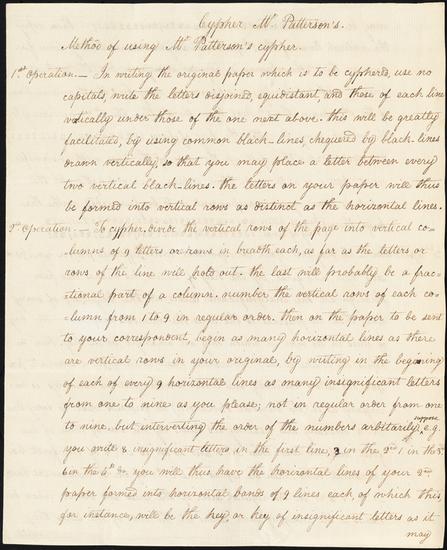 Cypher Mr Patterson's.
Method of using Mr Patterson's cypher.
1st Operation.— In writing the original paper which is to be cyphered, use no
capitals, write the letters disjoined, equidistant, and those of each line
vertically under those of the one next above. this will be greatly
facilitated, by using common black-lines, chequered by black-lines
drawn vertically, so that you may place a letter between every
two vertical black-lines. the letters on your paper will thus
be formed into vertical rows as distinct as the horizontal lines.
2d Operation.— To cypher. divide the vertical rows of the page into vertical co-
-lumns of 9 letters or rows in breadth each, as far as the letters or
rows of the line will hold out. the last will probably be a frac-
-tional part of a column. number the vertical rows of each co-
-lumn from 1 to 9 in regular order. then on the paper to be sent
to your correspondent, begin as many horizontal lines as there
are vertical rows in your original, by writing in the beginning
of each of every 9 horizontal lines as many insignificant letters
from one to nine as you please; not in regular order from one
to nine, but interverting the order of the numbers arbitrarily. suppose, e.g.
you write 8 insignificant letters in the first line, 3 in the 2nd 1 in the 3d
6 in the 4th &c. you will thus have the horizontal lines of your 2d
paper formed into horizontal bands of 9 lines each, of which this
for instance, will be the key, or key of insignificant letters as it
may